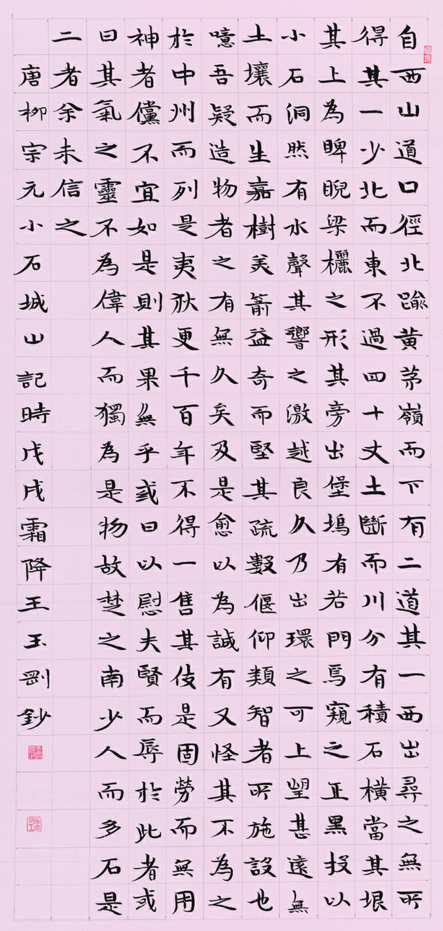 自西山道口徑北踰黃茅嶺而下有二道其一西出尋之無所
得其一少北而東不過四十丈土斷而川分有積石橫當其垠
其上為睥睨梁欐之形其旁出堡塢有若門焉窺之正黑投以
小石洞然有水聲其響之激越良久乃出環之可上望甚遠無
土壤而生嘉樹美箭益奇而堅其疏數偃仰類智者所施設也
噫吾疑造物者之有無久矣及是愈以為誠有又怪其不為之
於中州而列是夷狄更千百年不得一售其伎是固勞而無用
神者儻不宜如是則其果無乎或曰以慰夫賢而辱於此者或
曰其氣之靈不為偉人而獨為是物故楚之南少人而多石是
二者余未信之
唐柳宗元小石城山記時戊戌霜降王玉剛鈔